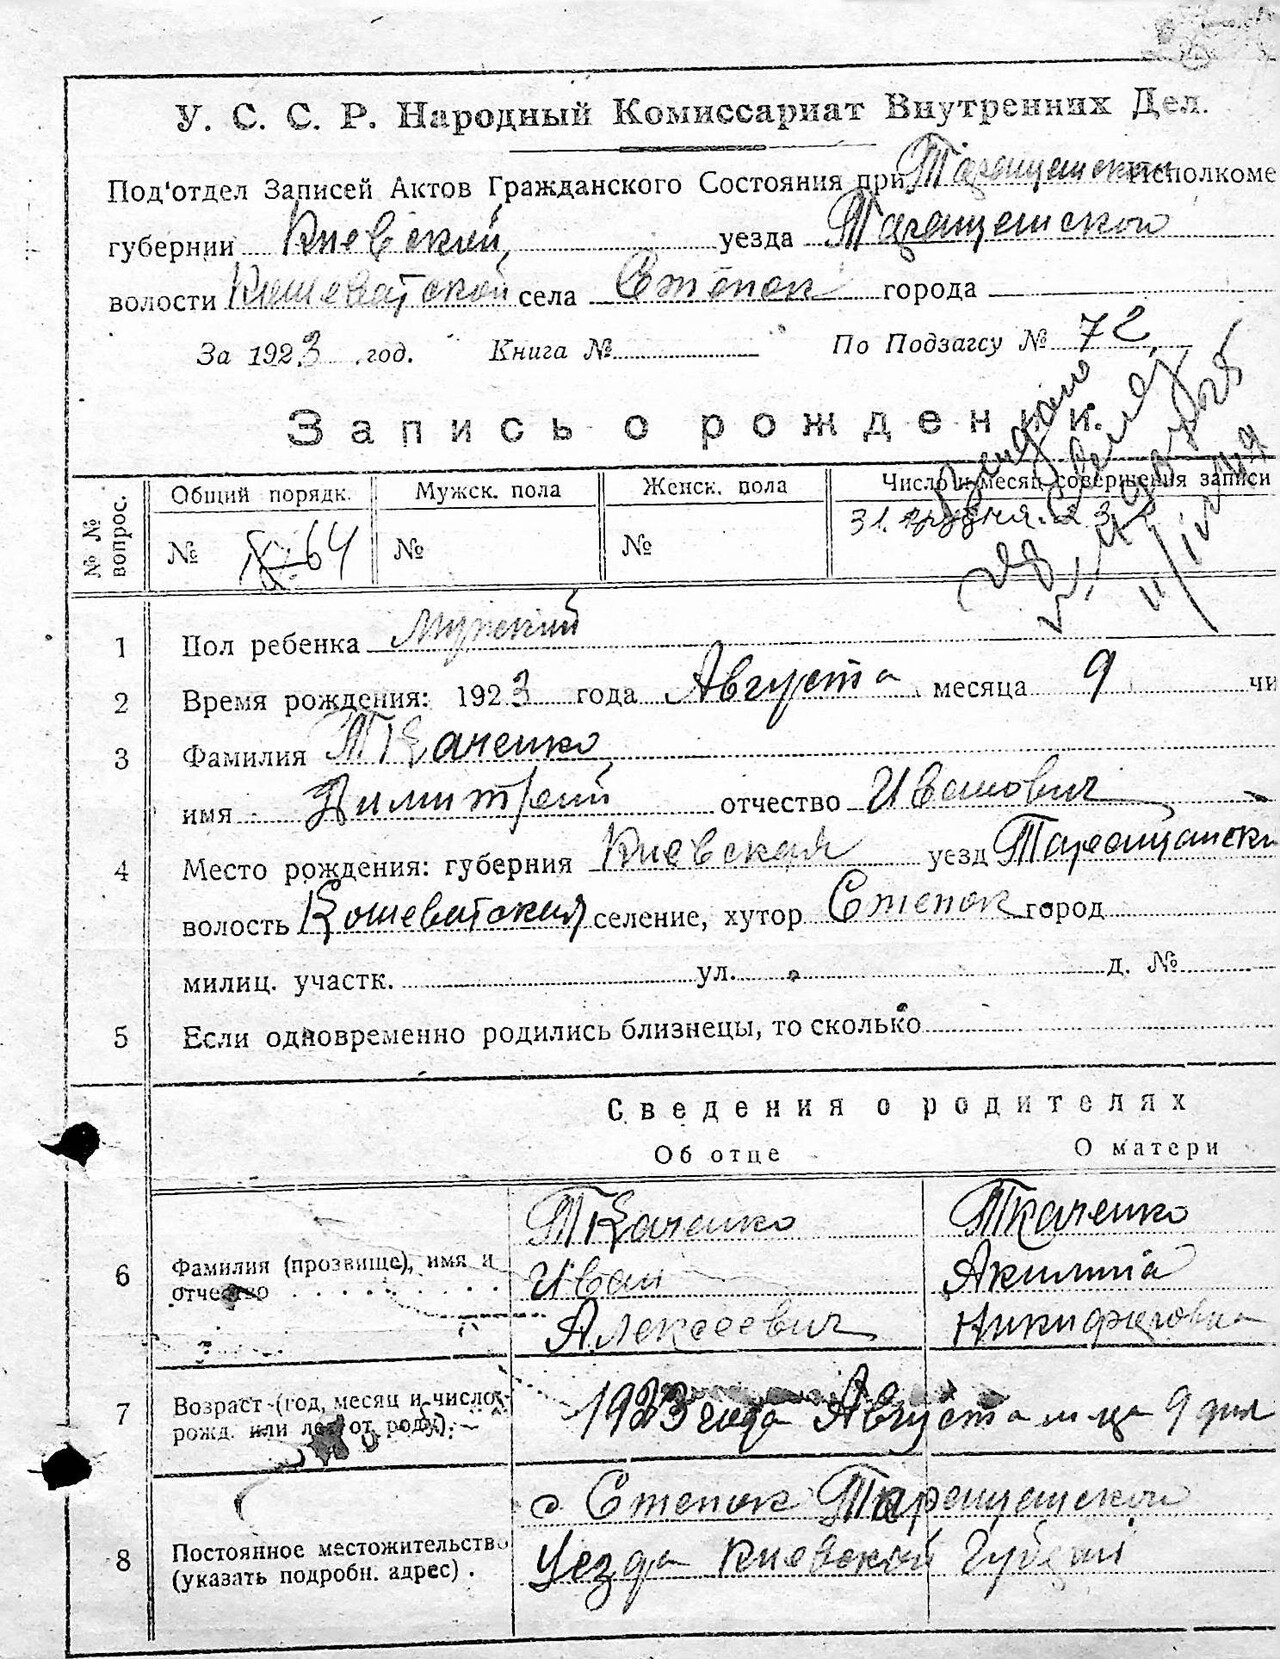 У. С. С. Р. Народный Комиссариат Внутренних Дел.
Под'отдел Записей Актов Гражданского Состояния при Таращенском Исполкоме
губернии Киевской, уезда Таращенской
волости Кошеватской села Степок города
За 1923 год. Книга № По Подзагсу № 72
Запись о рождении.
№ № вопрос. Общий порядк. Мужск. пола Женск. пола Число и месяц совершения записи
№ 64 № № 31. грудня. 23
1 Пол ребенка Мужский
2 Время рождения: 1923 года Августа месяца 9 чи
3 Фамилия Ткаченко
имя Димитрий отчество Иванович
4 Место рождения: губерния Киевская уезд Таращански
волость Кошеватская селение, хутор Степок город
милиц. участк. ул. д. №
5 Если одновременно родились близнецы, то сколько
Сведения о родителях
Об отце О матери
Ткаченко Ткаченко
6 Фамилия (прозвище), имя и Иван Акилина
отчество Алексеевич Никифоровна
7 Возраст (год, месяц и число 1923 года Августа м-ца 9 дня
рожд. или лет от роду).
с Степок Таращенской
8 Постоянное местожительство Уезда Киевской Губерни
(указать подробн. адрес) .